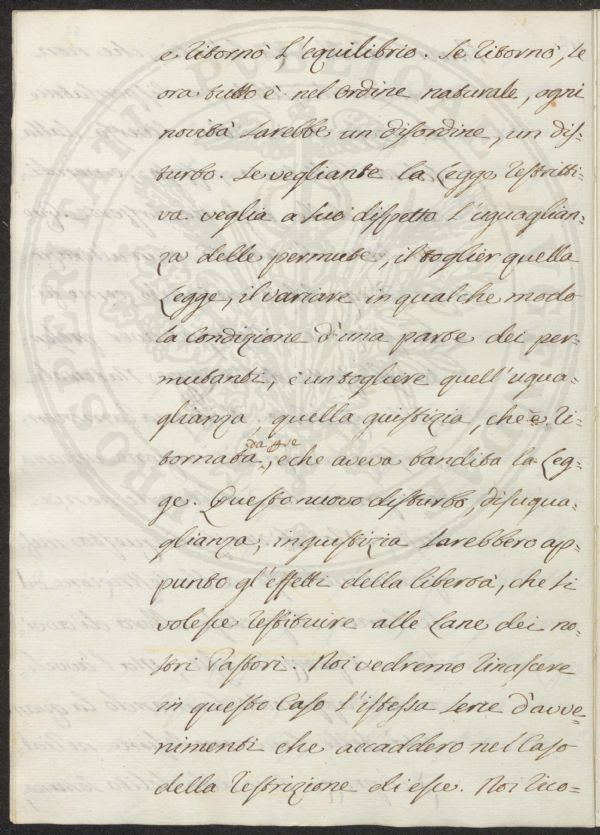 e ritornò l'equilibrio. Se ritornò, se
ora tutto è nel ordine naturale, ogni
novità sarebbe un disordine, un dis=
turbo. Se vegliante la Legge restritti=
va veglia a suo dispetto l'uguaglian=
za delle permute, il toglier quella
Legge, il variare in qualche modo
la condizione d'una parte dei per=
mutanti, è un togliere quell'ugua=
glianza, quella giustizia, che è ri=
da se
tornata, e che aveva bandita la Leg=
ge. Questo nuovo disturbo, disugua=
glianza, ingiustizia sarebbero ap=
punto gl'effetti della libertà, che si
volesse restituire alle Lane dei no=
stri Pastori. Noi vedremo rinascere
in questo Caso l'istessa serie d'avve=
nimenti che accaddero nel Caso
della restrizione di esse. Noi rico=
PROSPERITATI PUBLICAE AUGENDAE